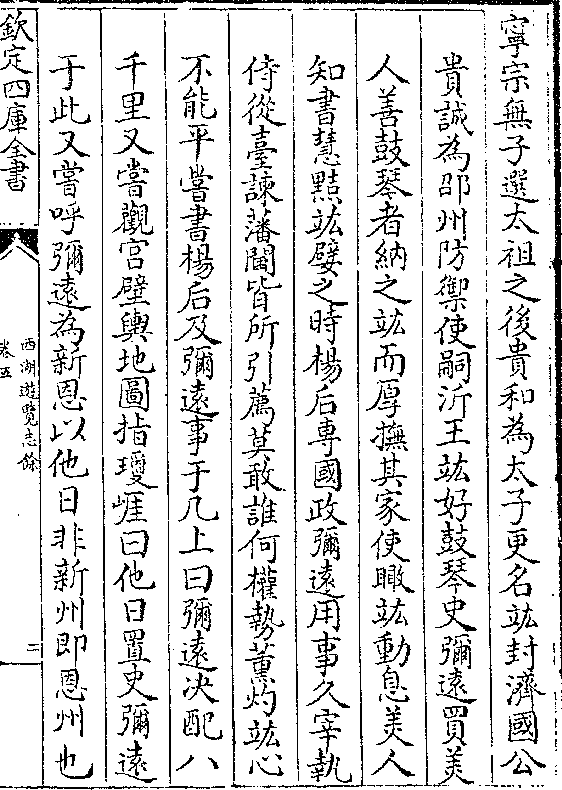 寧宗無子選太祖之後貴和為太子更名竑封濟國公
貴誠為邵州防禦使嗣沂王竑好鼓琴史彌遠買美
人善鼓琴者納之竑而厚撫其家使瞰竑動息美人
知書慧黠竑嬖之時楊后専國政彌遠用事久宰執
侍從臺諫藩閫皆所引薦莫敢誰何權勢薰灼竑心
不能平嘗書楊后及彌遠事于几上曰彌遠决配八
千里又嘗觀宫壁輿地圖指瓊崕曰他日置史彌遠
于此又嘗呼彌遠為新恩以他日非新州即恩州也
欽定四庫全書
西湖遊覽志餘
卷五
二